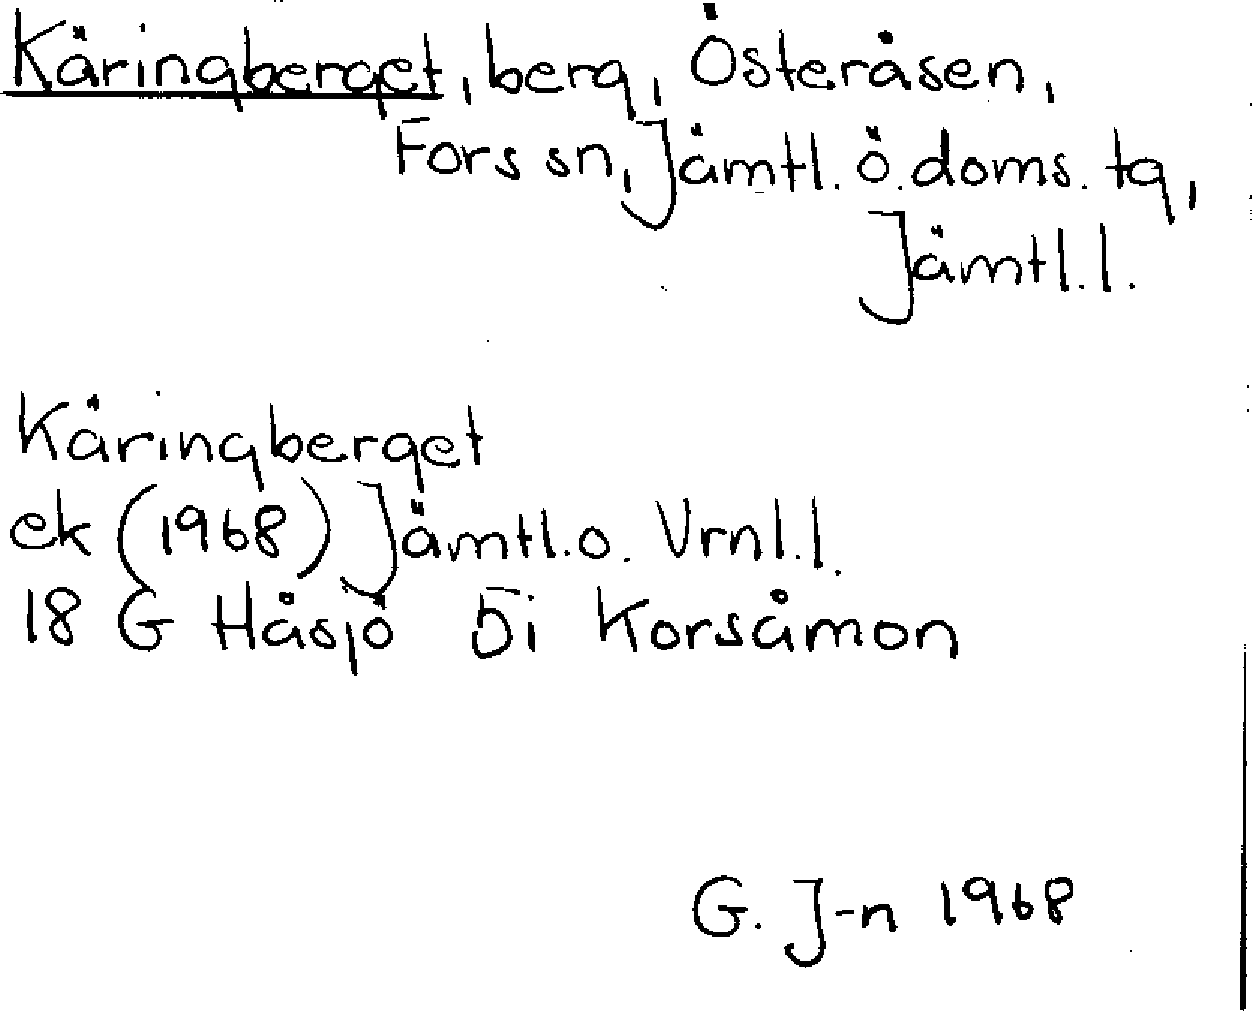 Käringberget, berg, Österåsen,
Fors sn, Jämtl. ö. doms. tg,
Jämtl. l.
Käringberget
ek (1968) Jämtl. o. Vrnl. l.
18 G Håsjö 5i Korsåmon
G. J-n 1968